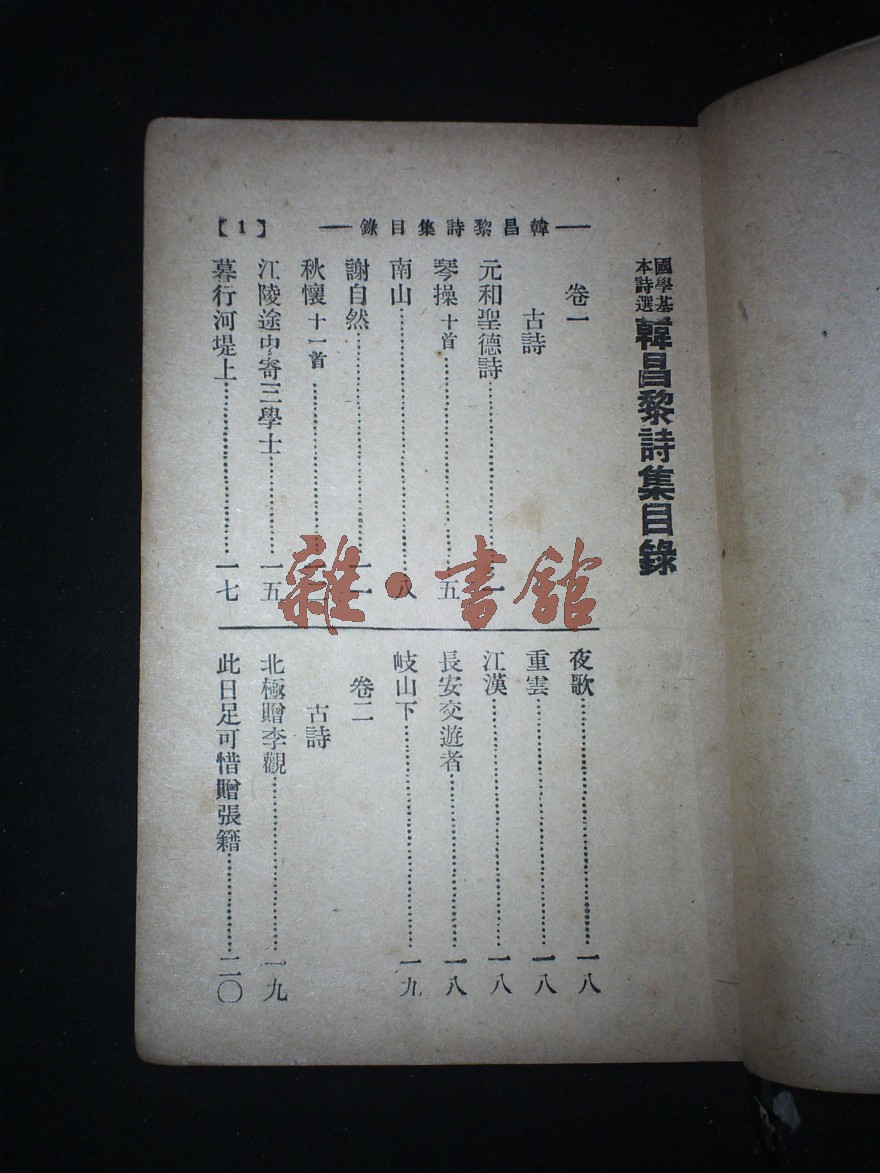 韓昌黎詩集目錄
【1】
國學基本詩選 韓昌黎詩集目錄
卷一
古詩
元和聖德詩……一
琴操 十首……五
南山……八
謝自然……一一
秋懷 十一首……
江陵途中寄三學士……一五
暮行河堤上……一七
夜歌……一八
重雲……一八
江漢……一八
長安交遊者……一八
岐山下……一九
卷二
古詩
北極贈李觀……一九
此日足可惜贈張籍……二〇
雜·書館